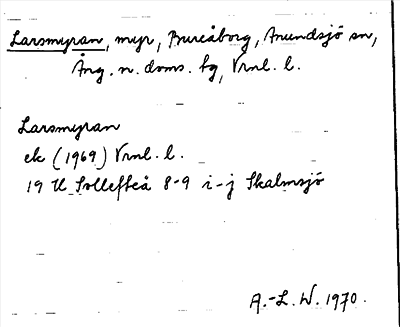 Larsmyran, myr, Bureåborg, Anundsjö sn,
Ång. n. doms. fg, Vrnl. l.
Larsmyran
ek (1969) Vrnl. l.
19 H Sollefteå 8-9 i-j Skalmsjö
A.-L. W. 1970.